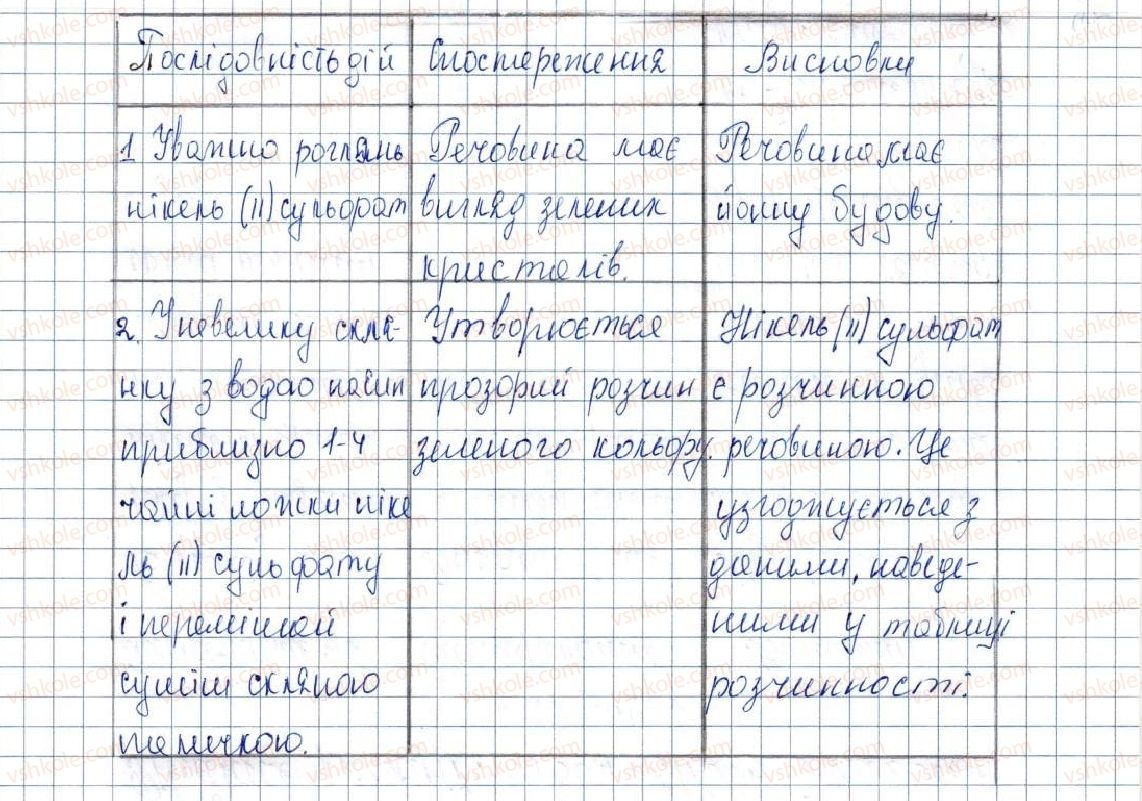 Послідовність дій
Спостереження
Висновки
1 Уважно роглянь
нікель (II) сульфат
Речовина має
вигляд зелених
кристалів.
Речовина має
йонну будову.
2. У невелику скля-
нку з водою насип
приблизно 1-4
чайні ложки ніке
ль (II) сульфату
і перемішай
суміш скляною
паличкою.
Утворюється
прозорий розчин
зеленого кольору.
Нікель (II) сульфат
є розчинною
речовиною. Це
узгоджується з
даними, наведе-
ними у таблиці
розчинності.